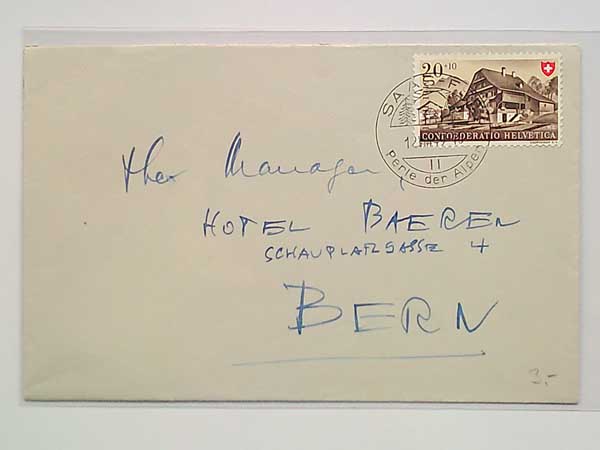 20+10
CONFOEDERATIO HELVETICA
SAAS-F
12
II
Perle der Alpen
the Manager,
HOTEL BAEREN
SCHAUPLATZGASSE 4
BERN
3.-